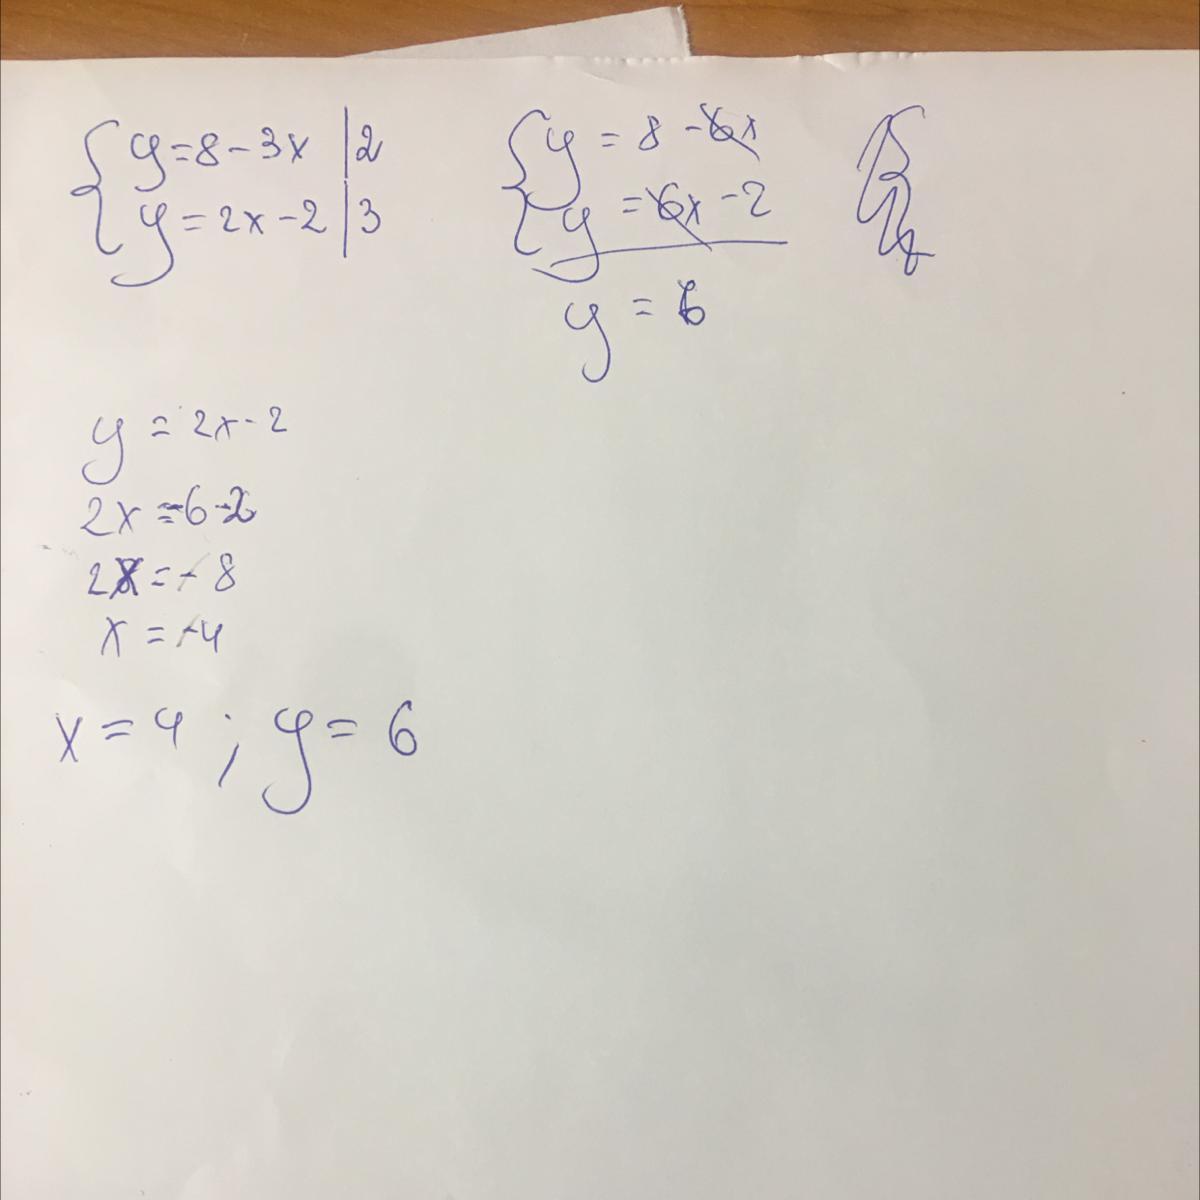 y=8-3x |2
y=2x-2 |3
y = 8 - 6x
y = 6x - 2
y = 6
y = 2x-2
2x =-6-2
2x = - 8
x = -4
x = 4 ; y = 6